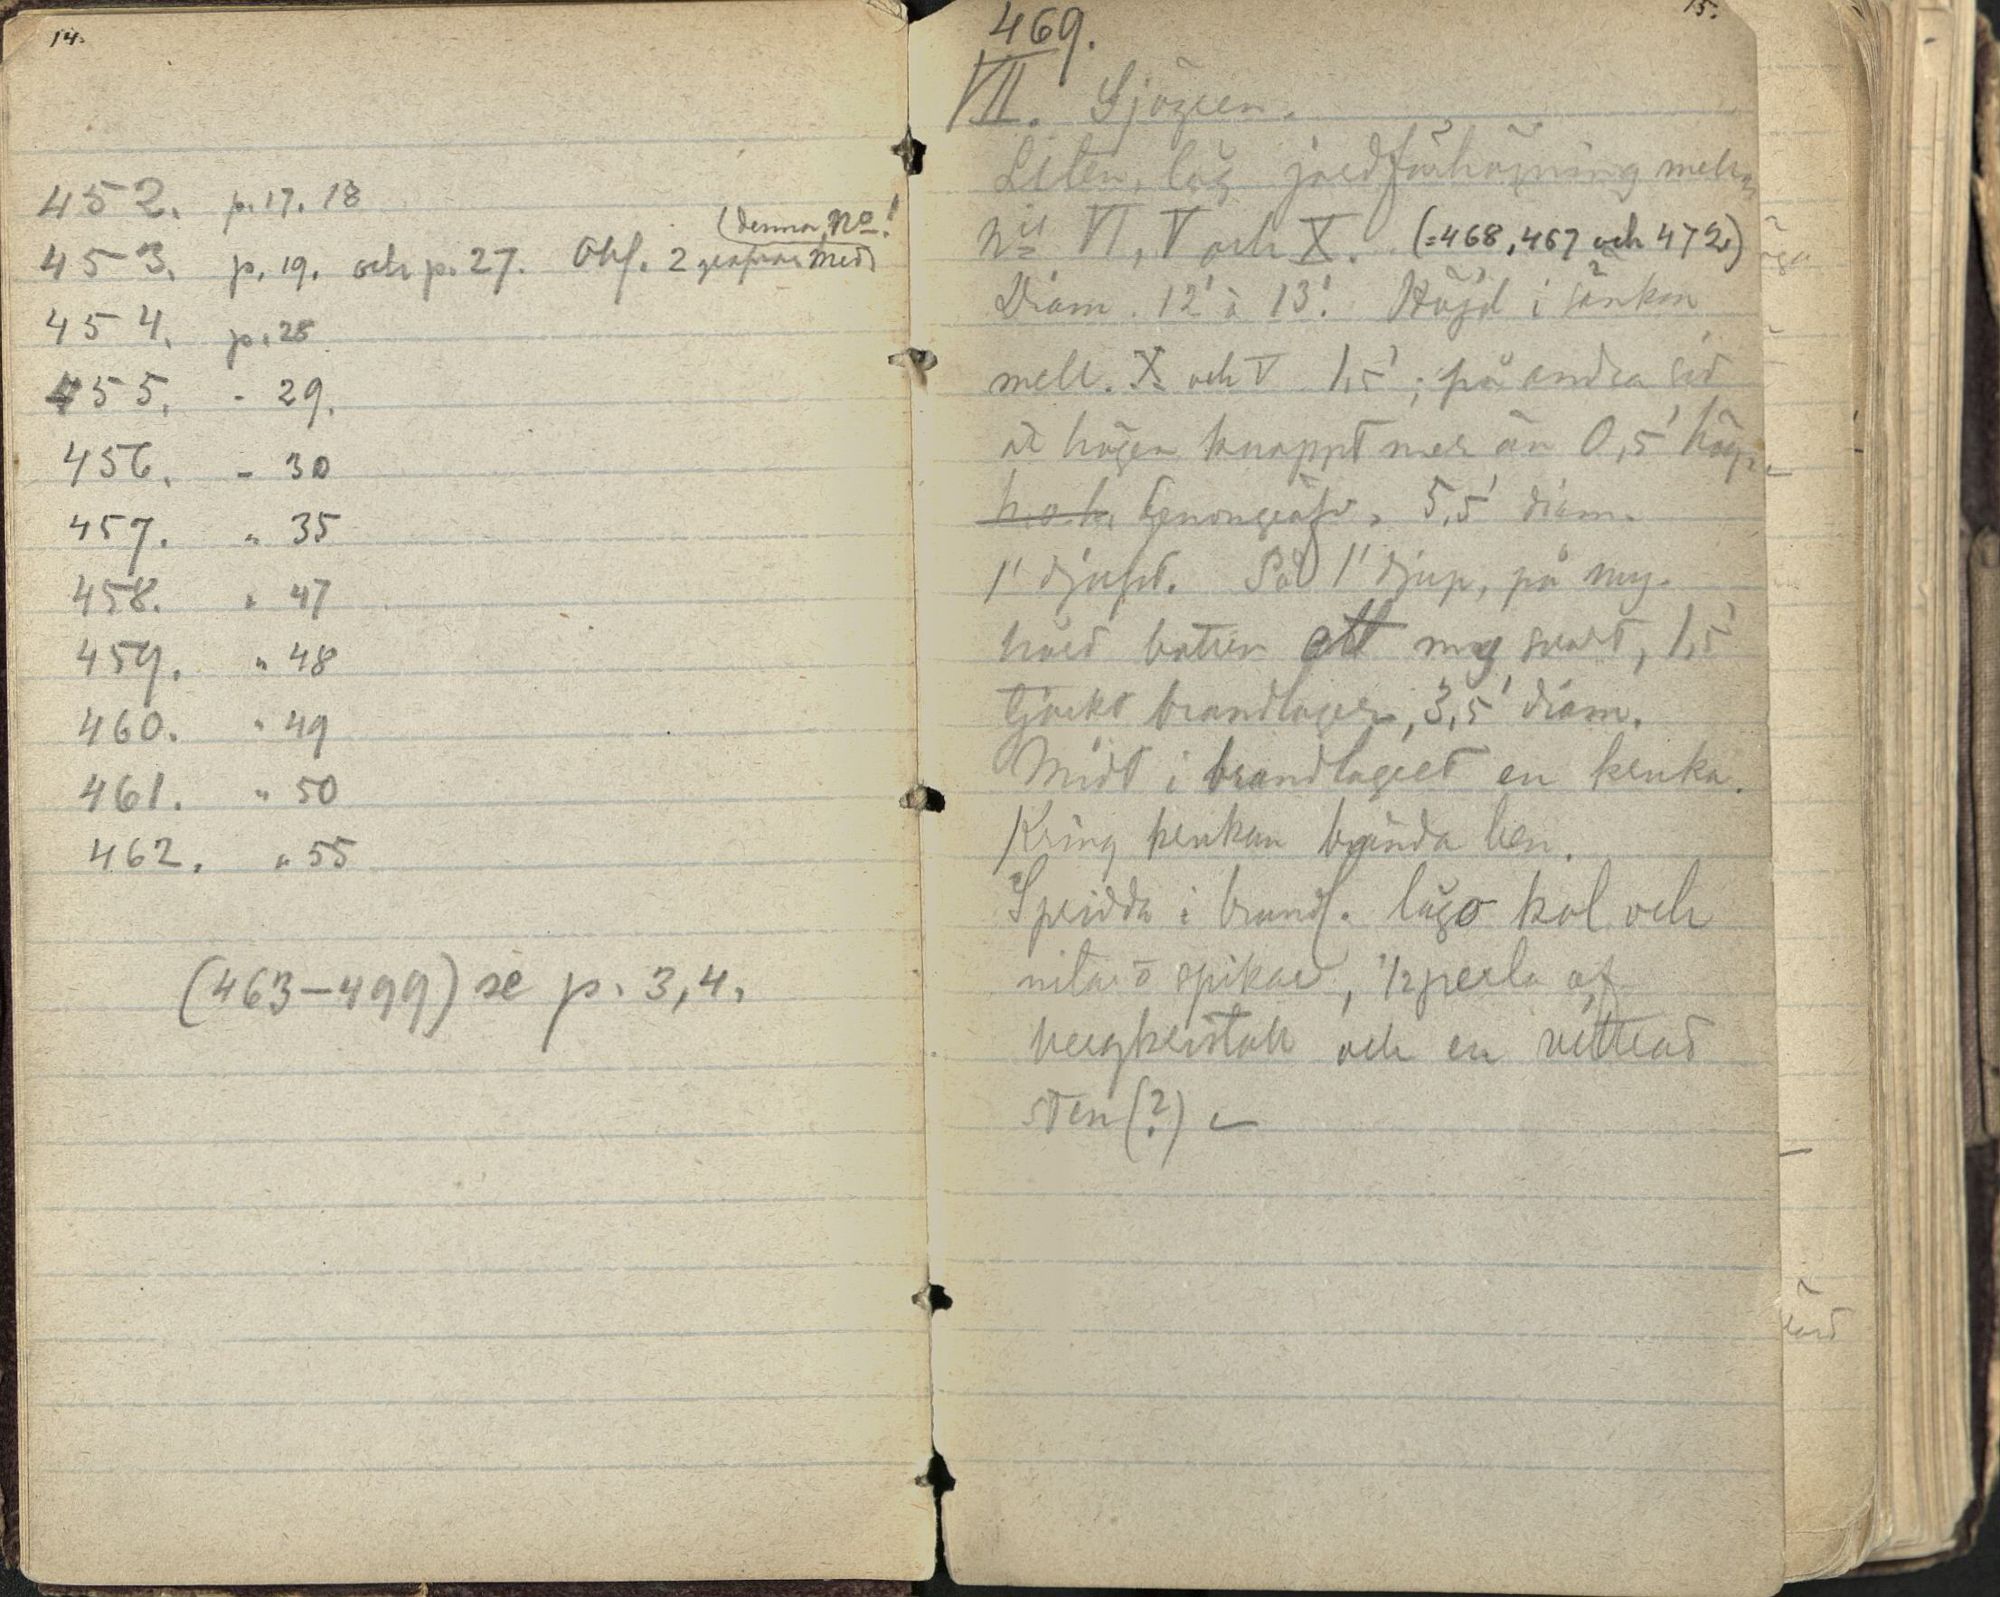 14.
452. p. 17. 18
(denna No!
453. p. 19. och p. 27. Obs. 2 grafvar med
454. p. 28
455. - 29.
456. - 30
457. " 35
458. " 47
459. " 48
460. " 49
461. " 50
462. " 55
(463-499) se p. 3, 4.
15.
469.
VII. Sjögren.
Liten, låg jordförhöjning mellan
No VI, V och X. (=468, 467 och 472.)
Diam. 12' à 13'. Höjd i sänkan
mell. X och V 1,5'; på andra sid
är högen knappt mer än 0,5' hög.
h.o.h. Genongräfd. 5,5' diam.
1' djupt. På 1' djup, på myc.
hård botten ett myc svart, 1,5'
tjockt brandlager, 3,5' diam.
Midt i brandlagret en kruka.
Kring krukan brända ben.
Spridda i brandl. lågo kol och
nitar o spikar, 1/2 perla af
bergkristall och en vittrad
sten (?)